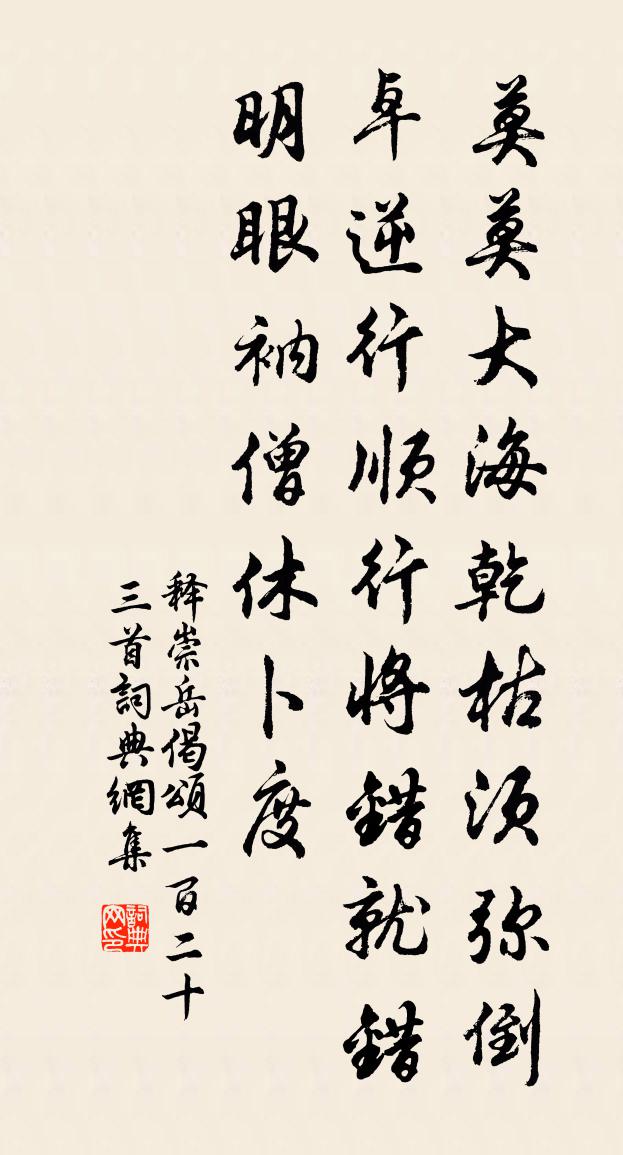 莫莫大海乾枯须弥倒
卓逆行顺行将错就错
明眼衲僧休卜度
释崇岳偈颂一百二十
三首詞典網集
詞典
网印